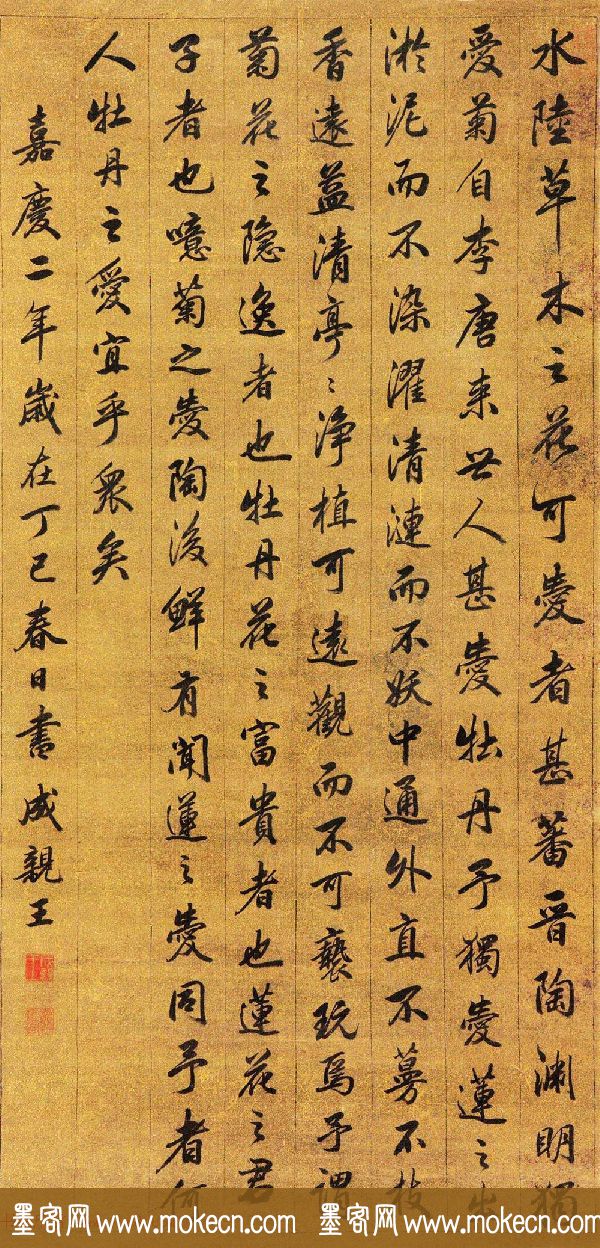 水陸草木之花可愛者甚蕃晉陶渊明獨
愛菊自李唐来世人甚愛牡丹予獨愛蓮之出
淤泥而不染濯清漣而不妖中通外直不蔓不枝
香遠益清亭〻淨植可遠觀而不可褻玩焉予謂
菊花之隐逸者也牡丹花之富貴者也蓮花之君
子者也噫菊之愛陶後鮮有聞蓮之愛同予者何
人牡丹之愛宜乎衆矣
嘉慶二年歲在丁巳春日書成親王
墨客网 www.mokecn.com 墨客网 www.mokecn.com